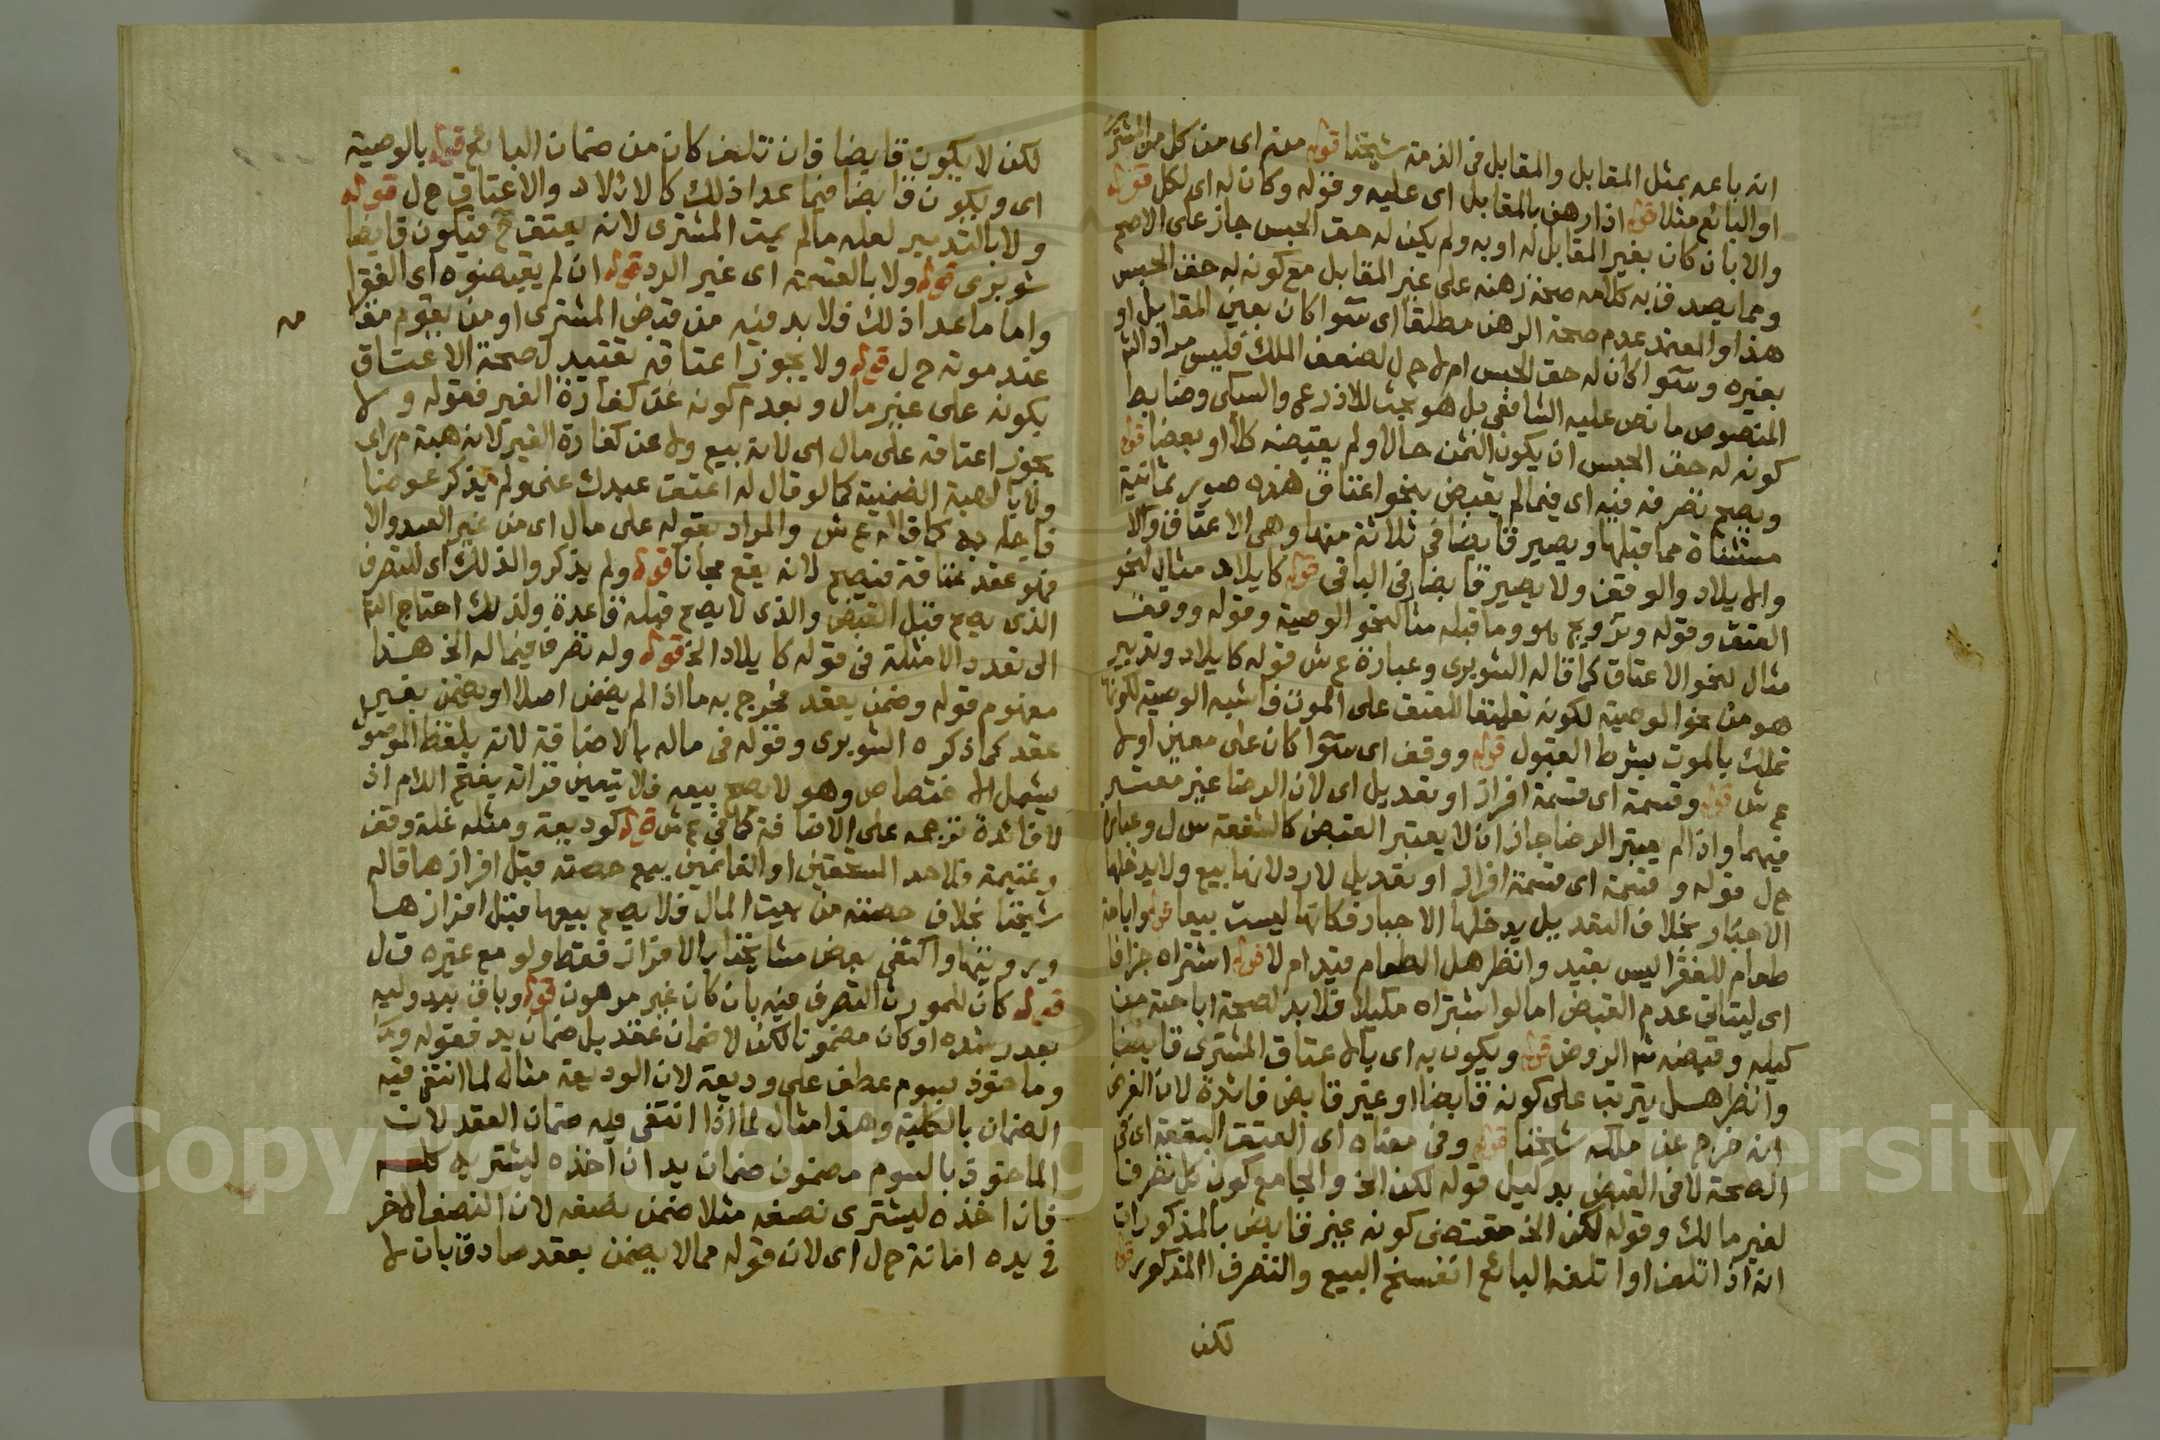 انه باعه بمثل المقابل والمقابل فى الذمة شيخنا قوله منه اى من كل من المشترى
او البائع مثلا قوله اذا رهن بالمقابل اى عليه وقوله وكان له اى لكل قوله
والا بان كان بغير المقابل له او به ولم يكن له حق الحبس جاز على الاصح
ومما يصدق به كلامه صحة رهنه على غير المقابل مع كونه له حق الحبس
هذا والمعتمد عدم صحة الرهن مطلقا اى سوا كان بعين المقابل او
بغيره وسوا كان له حق الحبس ام لا ح ل لضعف الملك فليس مراد الش
المنصوص ما نص عليه الشافعى بل هو بحث للاذرعى والسبكى وضابط
كونه له حق الحبس ان يكون الثمن حالا ولم يقبضه كلا او بعضا قوله
ويصح تصرفه فيه اى فيما لم يقبض بنحو اعتاق هذه صور ثمانية
مستثناة مما قبلها ويصير قابضا فى ثلاثة منها وهى الاعتاق والا
والايلاد والوقف ولا يصير قابضا فى الباقى قوله كايلاد مثال لنحو
العتق وقوله وتزويج هو وما قبله مثال لنحو الوصية وقوله ووقف
مثال لنحو الاعتاق كما قاله الشوبرى وعبارة ع ش قوله كايلاد وتدبير
هو من نحو الوصية لكونه تعليقا للعتق على الموت فاشبه الوصية لكونها
تملك بالموت بشرط القبول قوله ووقف اى سوا كان على معين او لا
ع ش قوله وقسمة اى قسمة افراز او تعديل اى لان الرضا غير معتبر
فيهما واذا لم يعتبر الرضا جاز ان لا يعتبر القبض كالشفعة س ل وعبارة
ح ل قوله وقسمة اى قسمة افراز او تعديل لا رد لانها بيع ولا يدخلها
الاجبار بخلاف التعديل يدخلها الاجبار فكانها ليست بيعا قوله واباحة
طعام للفقرا ليس بقيد وانظر هل الطعام قيد ام لا قوله اشتراه جزافا
اى ليتاتى عدم القبض اما لو اشتراه مكيلا فلا بد لصحة اباحته من
كيله وقبضه شر الروض قوله ويكون به اى بالاعتاق المشترى قابضا
وانظر هل يترتب على كونه قابضا او غير قابض فائدة لان الغرض
انه خرج عن ملكه شيخنا قوله وفى معناه اى العتق البقية اى فى
الصحة لا فى القبض بدليل قوله لكن الخ والجامع كون كل تصرفا
لغير مالك وقوله لكن الخ مقتضى كونه غير قابض بالمذكورات
انه اذا تلف او اتلفه البائع انفسخ البيع والتصرف المذكور قوله
لكن
لكن لا يكون قابضا فان تلف كان من ضمان البائع قوله بالوصية
اى ويكون قابضا فيما عدا ذلك كالايلاد والاعتاق ح ل قوله
ولا بالتدبير لعله ما لم يمت المشترى لانه يعتق ح فيكون قابضا
شوبرى قوله ولا بالقسمة اى غير الرد قوله ان لم يقبضوه اى الفقرا
واما ما عدا ذلك فلا بد فيه من قبض المشترى او من يقوم مقا
مه
عند موته ح ل قوله ولا يجوز اعتاقه تقييد لصحة الاعتاق
بكونه على غير مال وبعدم كونه عن كفارة الغير فقوله ولا
يجوز اعتاقه على مال اى لانه بيع ولا عن كفارة الغير لانه هبة م ر اى
ولا بالهبة الضمنية كما لو قال له اعتق عبدك عنى ولم يذكر عوضا
فاجابه كما قاله ع ش والمراد بقوله على مال اى من غير العبد والا
فهو عقد عتاقة فيصح لانه يقع مجانا قوله ولم يذكروا لذلك اى للتصرف
الذى يصح قبل القبض والذى لا يصح قبله قاعدة ولذلك احتاج الش
الى تعدد الامثلة فى قوله كايلاد الخ قوله وله تصرف فيما له الخ هذا
مفهوم قوله وضمن بعقد مخرج به ما اذا لم يضمن اصلا او يضمن بغير
عقد كما ذكره الشوبرى وقوله فى ماله بالاضافة لانه بلفظ الموصول
يشمل الاختصاص وهو لا يصح بيعه فلا يتعين قراته بفتح اللام اذ
لا فائدة ترجحه على الاضافة كما فى ع ش قوله كوديعة ومثله غلة وقف
وغنيمة فلاحد المستحقين او الغانمين بيع حصته قبل افرازها قاله
شيخنا بخلاف حصته من بيت المال فلا يصح بيعها قبل افرازها
ورويتها واكتفى بعض مشايخنا بالافراز فقط ولو مع غيره ق ل
قوله كان للمورث التصرف فيه بان كان غير مرهون قوله وباق بيد وليه
بعد رشده او كان مضمونا لكن لا ضمان عقد بل ضمان يد فقوله وما
وماخوذ بسوم عطف على وديعة لان الوديعة مثال لما انتفى فيه
الضمان بالكلية وهذا مثال لما اذا انتفى فيه ضمان العقد لان
الماخوذ بالسوم مضمون ضمان يد ان اخذه ليشتريه كله
فان اخذه ليشترى نصفه مثلا ضمن نصفه لان النصف الاخر
فى يده امانة ح ل اى لان قوله مما لا يضمن بعقد صادق بان لا
Copyright © King Saud University